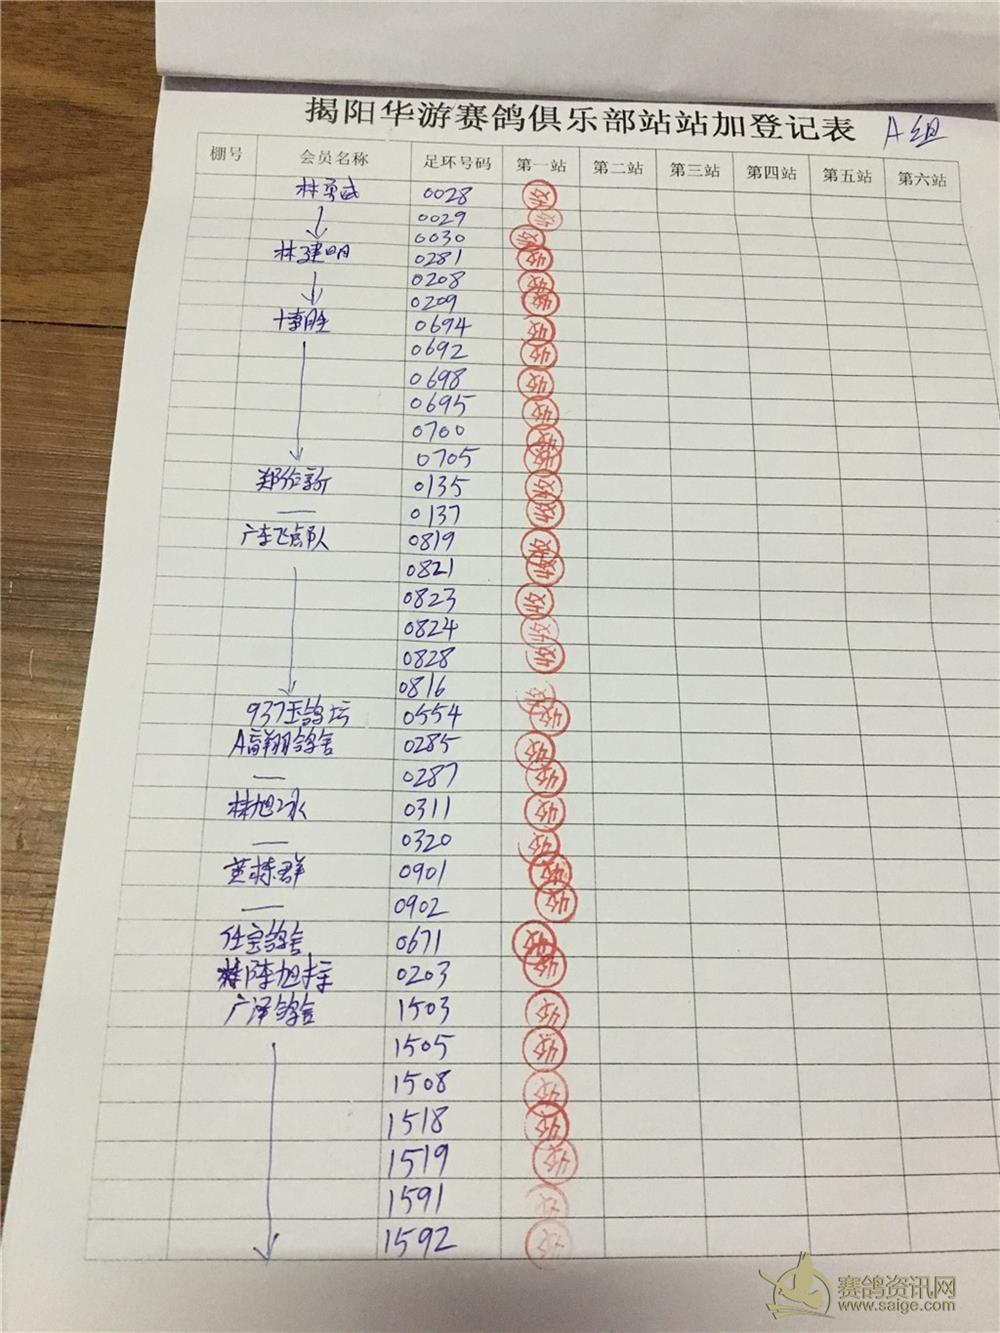 揭阳华游赛鸽俱乐部站站加登记表 A组
棚号 会员名称 足环号码 第一站 第二站 第三站 第四站 第五站 第六站
林勇武 0028 收
0029 收
0030 收
林建明 0281 收
0208 收
0209 收
0694 收
0692 收
0698 收
0695 收
0700 收
0705 收
0135 收
0137 收
广东飞点队 0819 收
0821 收
0823 收
0824 收
0828 收
0816 收
937玉鸽坛 0554 收
A福翔鸽舍 0285 收
0287 收
林旭冰 0311 收
0320 收
黄栋群 0901 收
0902 收
任宝鸽舍 0671 收
陈旭 0203 收
广泽鸽舍 1503 收
1505 收
1508 收
1518 收
1519 收
1591 收
1592 收
赛鸽资讯网
www.saige.com